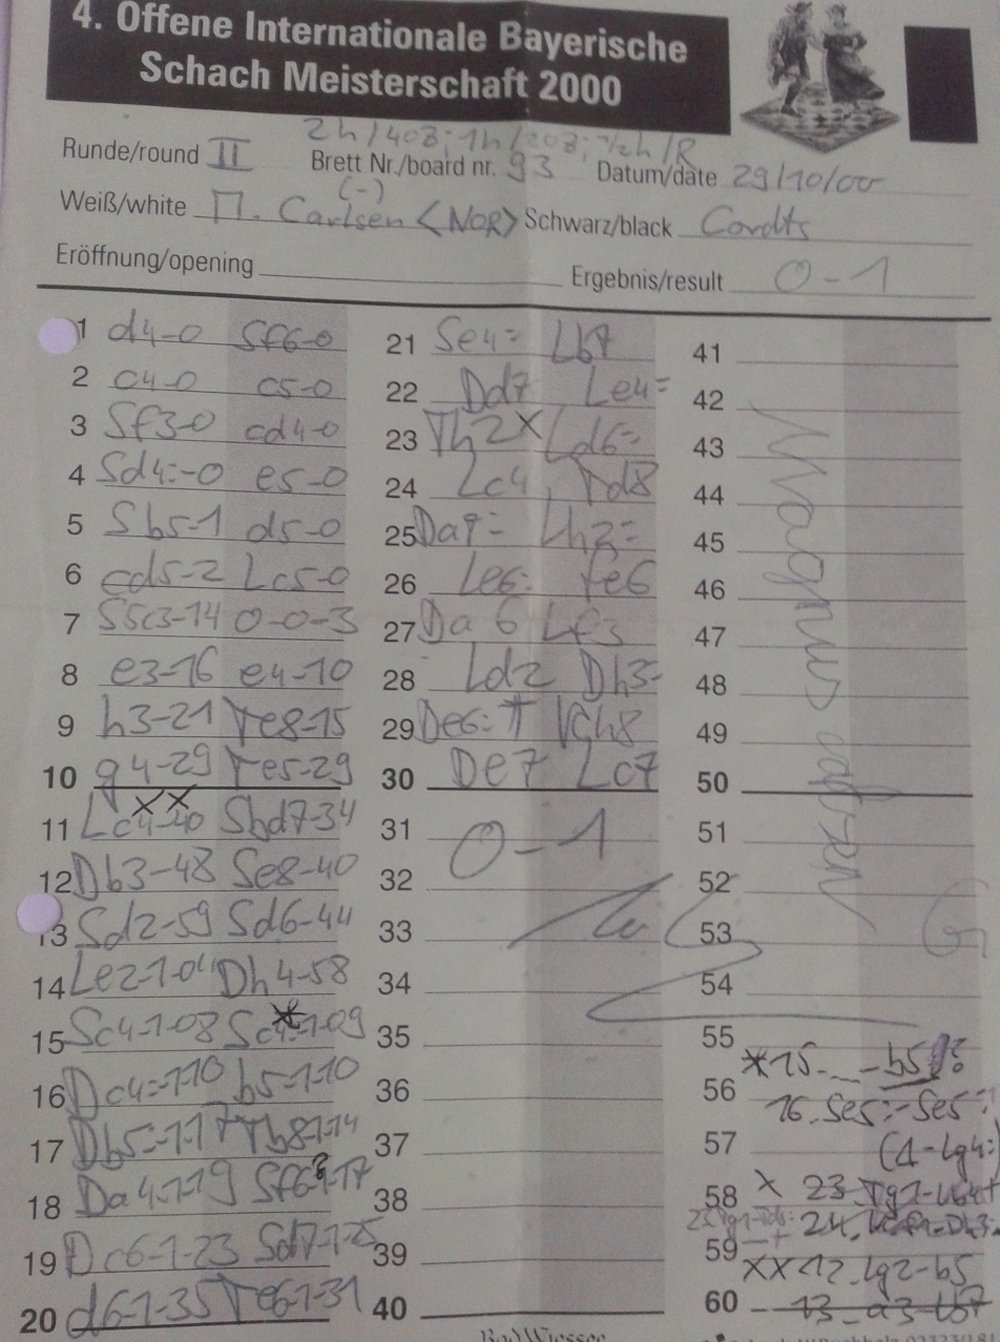 4. Offene Internationale Bayerische
Schach Meisterschaft 2000
2h/40z; 1h/20z; 1/2h/R
Runde/round II Brett Nr./board nr. 93 Datum/date 29/10/00
(-)
Weiß/white M. Carlsen <NOR> Schwarz/black Cordts
Eröffnung/opening Ergebnis/result 0-1
1 d4-0 Sf6-0
2 c4-0 c5-0
3 Sf3-0 cd4-0
4 Sd4:-0 e5-0
5 Sb5-1 d5-0
6 cd5-2 Lc5-0
7 S5c3-14 0-0-3
8 e3-16 e4-10
9 h3-21 Te8-15
10 g4-29 Te5-29
11 Lc4-40 Sbd7-34
12 Db3-48 Se8-40
13 Sd2-59 Sd6-44
14 Le2-1-04 Dh4-58
15 Sc4-1-08 Sc4:-1-09
16 Dc4:-1-10 b5-1-10
17 Db5:-1-17 Tb8-1-14
18 Da4-1-19 Sf6?-1-17
19 Dc6-1-23 Sd7-1-25
20 d6-1-35 Te6-1-31
21 Se4: Lb7
22 Dd7 Le4:
23 Th2 x Ld6:
24 Lc4, Td8
25 Da7: Lh2:
26 Le6: fe6
27 Da6 Lf3
28 Ld2 Dh3:
29 De6:+ Kh8
30 De7 Lc7
31 0-1
32
33
34
35
36
37
38
39
40
41
42
43
44
45
46
47
48
49
50
51
52
53
54
55
56
57
58
59
60
Magnus Carlsen
*15. _ - b5!?
16. Se5:-Se5:
(Δ-Lg4:)
x 23. Tg1-Lb4+
24. Kf1-Dh3:
xx 12. Lg2-b5
13. a3-Lb7
Bad Wiessee